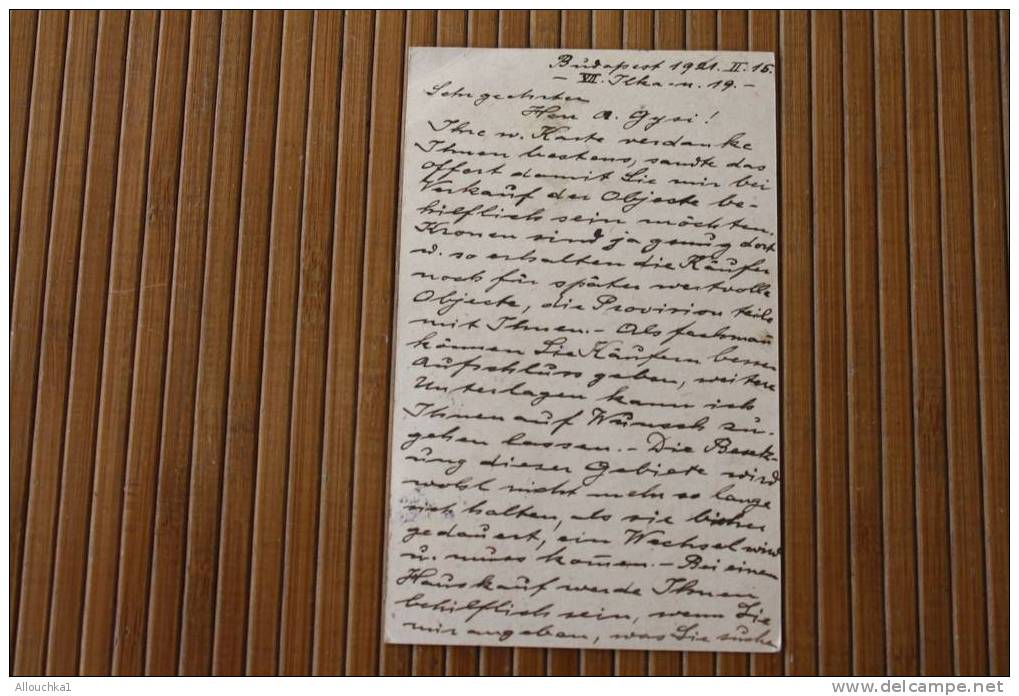 Budapest 1921. II. 15.
– VII. Ilka-u. 19. –
Sehr geehrter
Herr A. Gysi!
Ihre w. Karte verdanke
Ihnen bestens, sandte das
Offert damit Sie mir bei
Verkauf der Objeste be-
hilflich sein möchten.
Kronen sind ja genug dort
u. so erhalten die Käufer
noch für später wertvolle
Objecte, die Provision teile
mit Ihnen. – Als fachmañ
können Sie Käufern besser
Aufschluss geben, weitere
Unterlagen kann ich
Ihnen auf Wunsch zu-
gehen lassen. – Die Besetz-
ung dieser Gebiete wird
wohl nicht mehr so lange
sich halten, als sie bisher
gedauert, ein Wechsel wird
u. muss kom̃en. – Bei einem
Hauskauf werde Ihnen
behilflich sein, wenn Sie
mir angeben, was Sie suchen
Allouchka1
delcampe.net